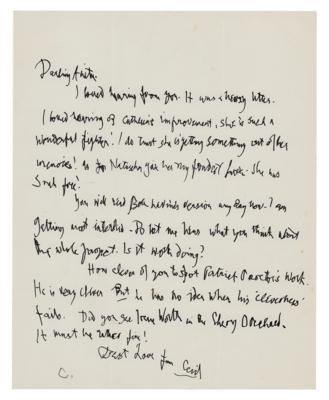 Darling Anita.
I loved hearing from you. It was a letter.
I loved hearing of Catherine improvement, she is such a
wonderful fighter! I do trust she is getting something out of her
memories! As for Natasha you her my fondest love. She was
such fun!
You will read version any day now. I am
getting most . Do let me know what you think about
the whole project. Is it worth doing?
How clever of you to spot Patrick Procter's work.
He is very clever. But he has no idea when his 'cleverness'
fails. Did you see Irene Worth in the Cherry Orchard.
It must be rather fine!
Best Love from Cecil
C.